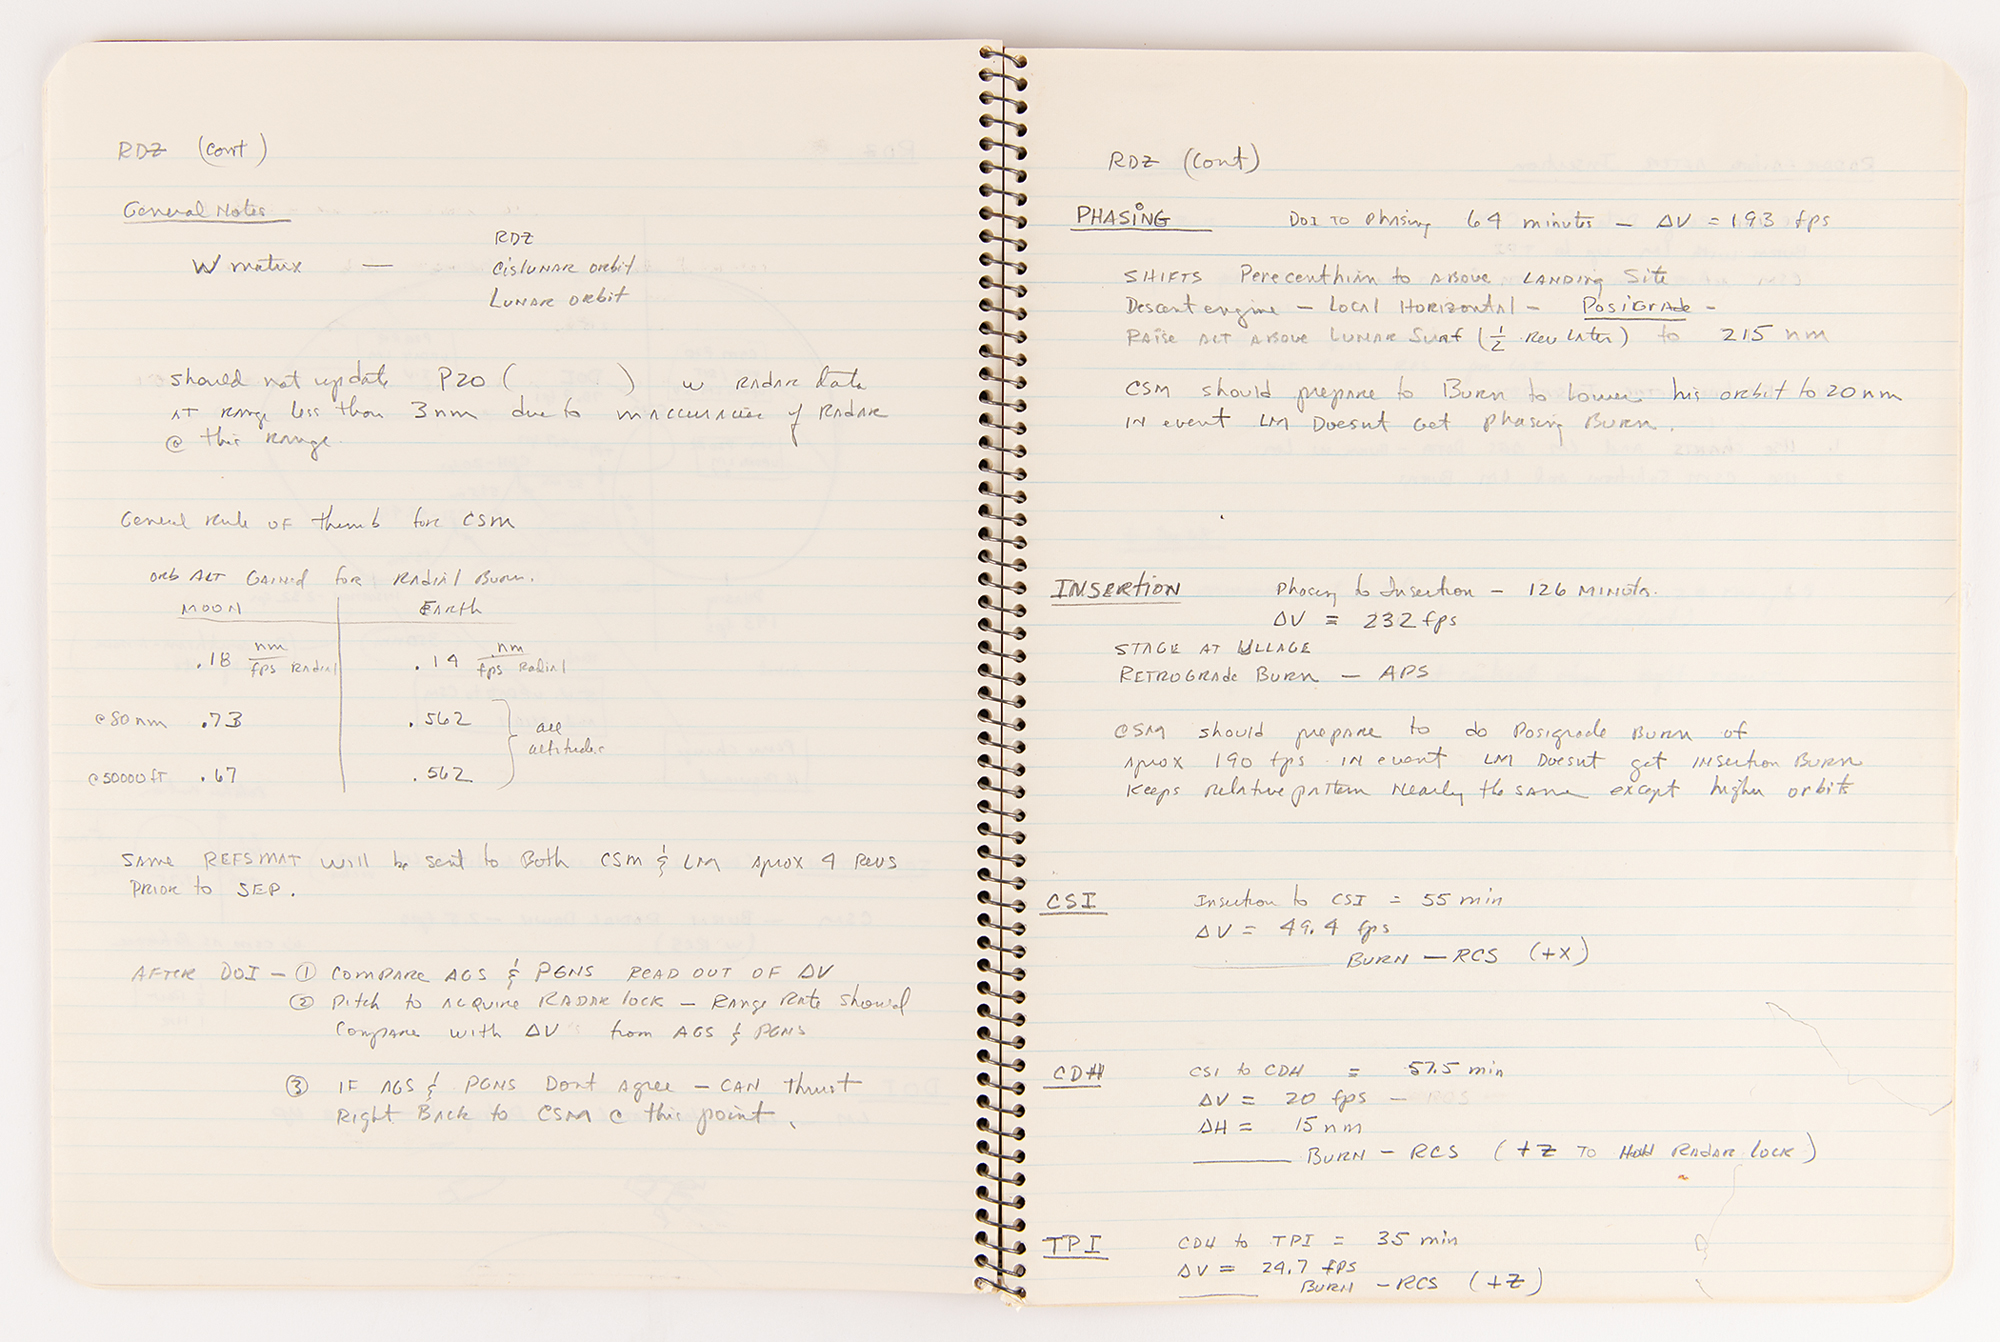 RDZ (cont)
General Notes
RDZ
W matrix — cislunar orbit
Lunar orbit
should not update P20 ( ) w Radar data
AT range less than 3nm due to inaccuracies of Radar
@ this range.
General rule of thumb for CSM
orb ALT GAINed for Radial Burn.
MOON Earth
.18 nm/fps Radial .14 nm/fps Radial
@ 80 nm .73 .562 } all altitudes
@ 50000 FT .67 .562
SAME REFSMAT will be sent to Both CSM & LM Aprox 4 Revs
PRIOR to SEP.
AFTER DOI – ① COMPARE AGS & PGNS READ OUT OF ΔV
② Pitch to ACQUIRE RADAR LOCK – RANGE RATE should
Compare with ΔV from AGS & PGNS
③ IF AGS & PGNS Dont Agree – CAN thrust
Right Back to CSM @ this point.
RDZ (Cont)
PHASING DOI TO Phasing 64 minutes – ΔV = 193 fps
SHIFTS Perecenthian to ABOVE LANDing Site
Descent engine – Local Horizontal – POSIGRADE –
RAISE ALT ABOVE LUNAR Surf (½ Rev later) to 215 nm
CSM should prepare to Burn to lower his orbit to 20 nm
IN event LM Doesnt Get Phasing Burn.
INSERTION Phasing to Insertion – 126 MINUTES.
ΔV = 232 fps
STAGE AT ULLAGE
RETROGRADE BURN – APS
CSM should prepare to do Posigrade Burn of
Aprox 190 fps IN event LM Doesnt get INSERTION BURN
Keeps relative pattern Nearly the same except higher orbits
CSI Insertion to CSI = 55 min
ΔV = 49.4 fps
BURN – RCS (+X)
CDH CSI to CDH = 57.5 min
ΔV = 20 fps –
ΔH = 15 nm
BURN – RCS (+Z TO Hold RADAR LOCK)
TPI CDH to TPI = 35 min
ΔV = 24.7 fps
BURN – RCS (+Z)